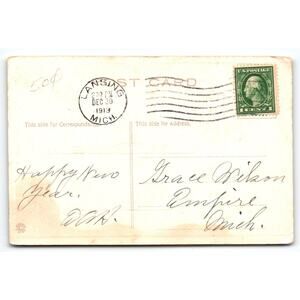 50¢
POST CARD
LANSING
DEC 30
1913
MICH.
U.S. POSTAGE
1 CENT 1
This side for Correspondence
This side for Address.
Happy New
Year.
Grace Wilson
Empire
Mich.